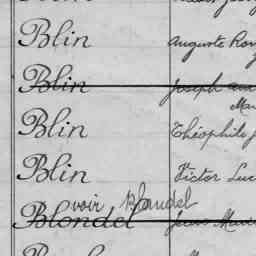 Blin Auguste
Blin Joseph
Blin Théophile J
Blin Victor Luc
voir Blandel
Blondel Jean